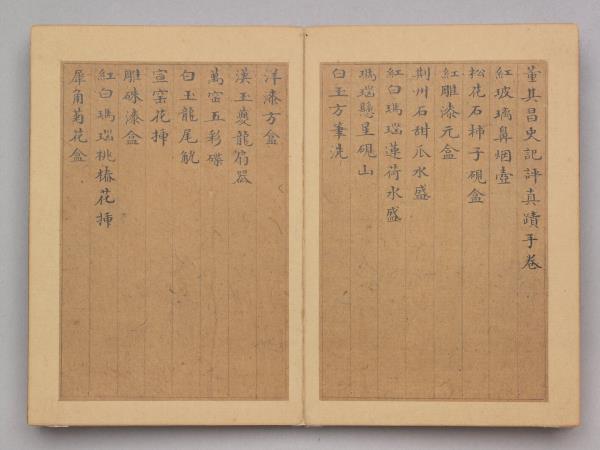 董其昌史記評真蹟手卷
紅玻璃鼻烟壺
松花石柿子硯盒
紅雕漆元盒
荆州石甜瓜水盛
紅白瑪瑙蓮荷水盛
瑪瑙懸星硯山
白玉方筆洗
洋漆方盒
漢玉夔龍觷器
萬窑五彩碟
白玉龍尾觥
宣窑花揷
雕硃漆盒
紅白瑪瑙桃椿花揷
犀角菊花盒